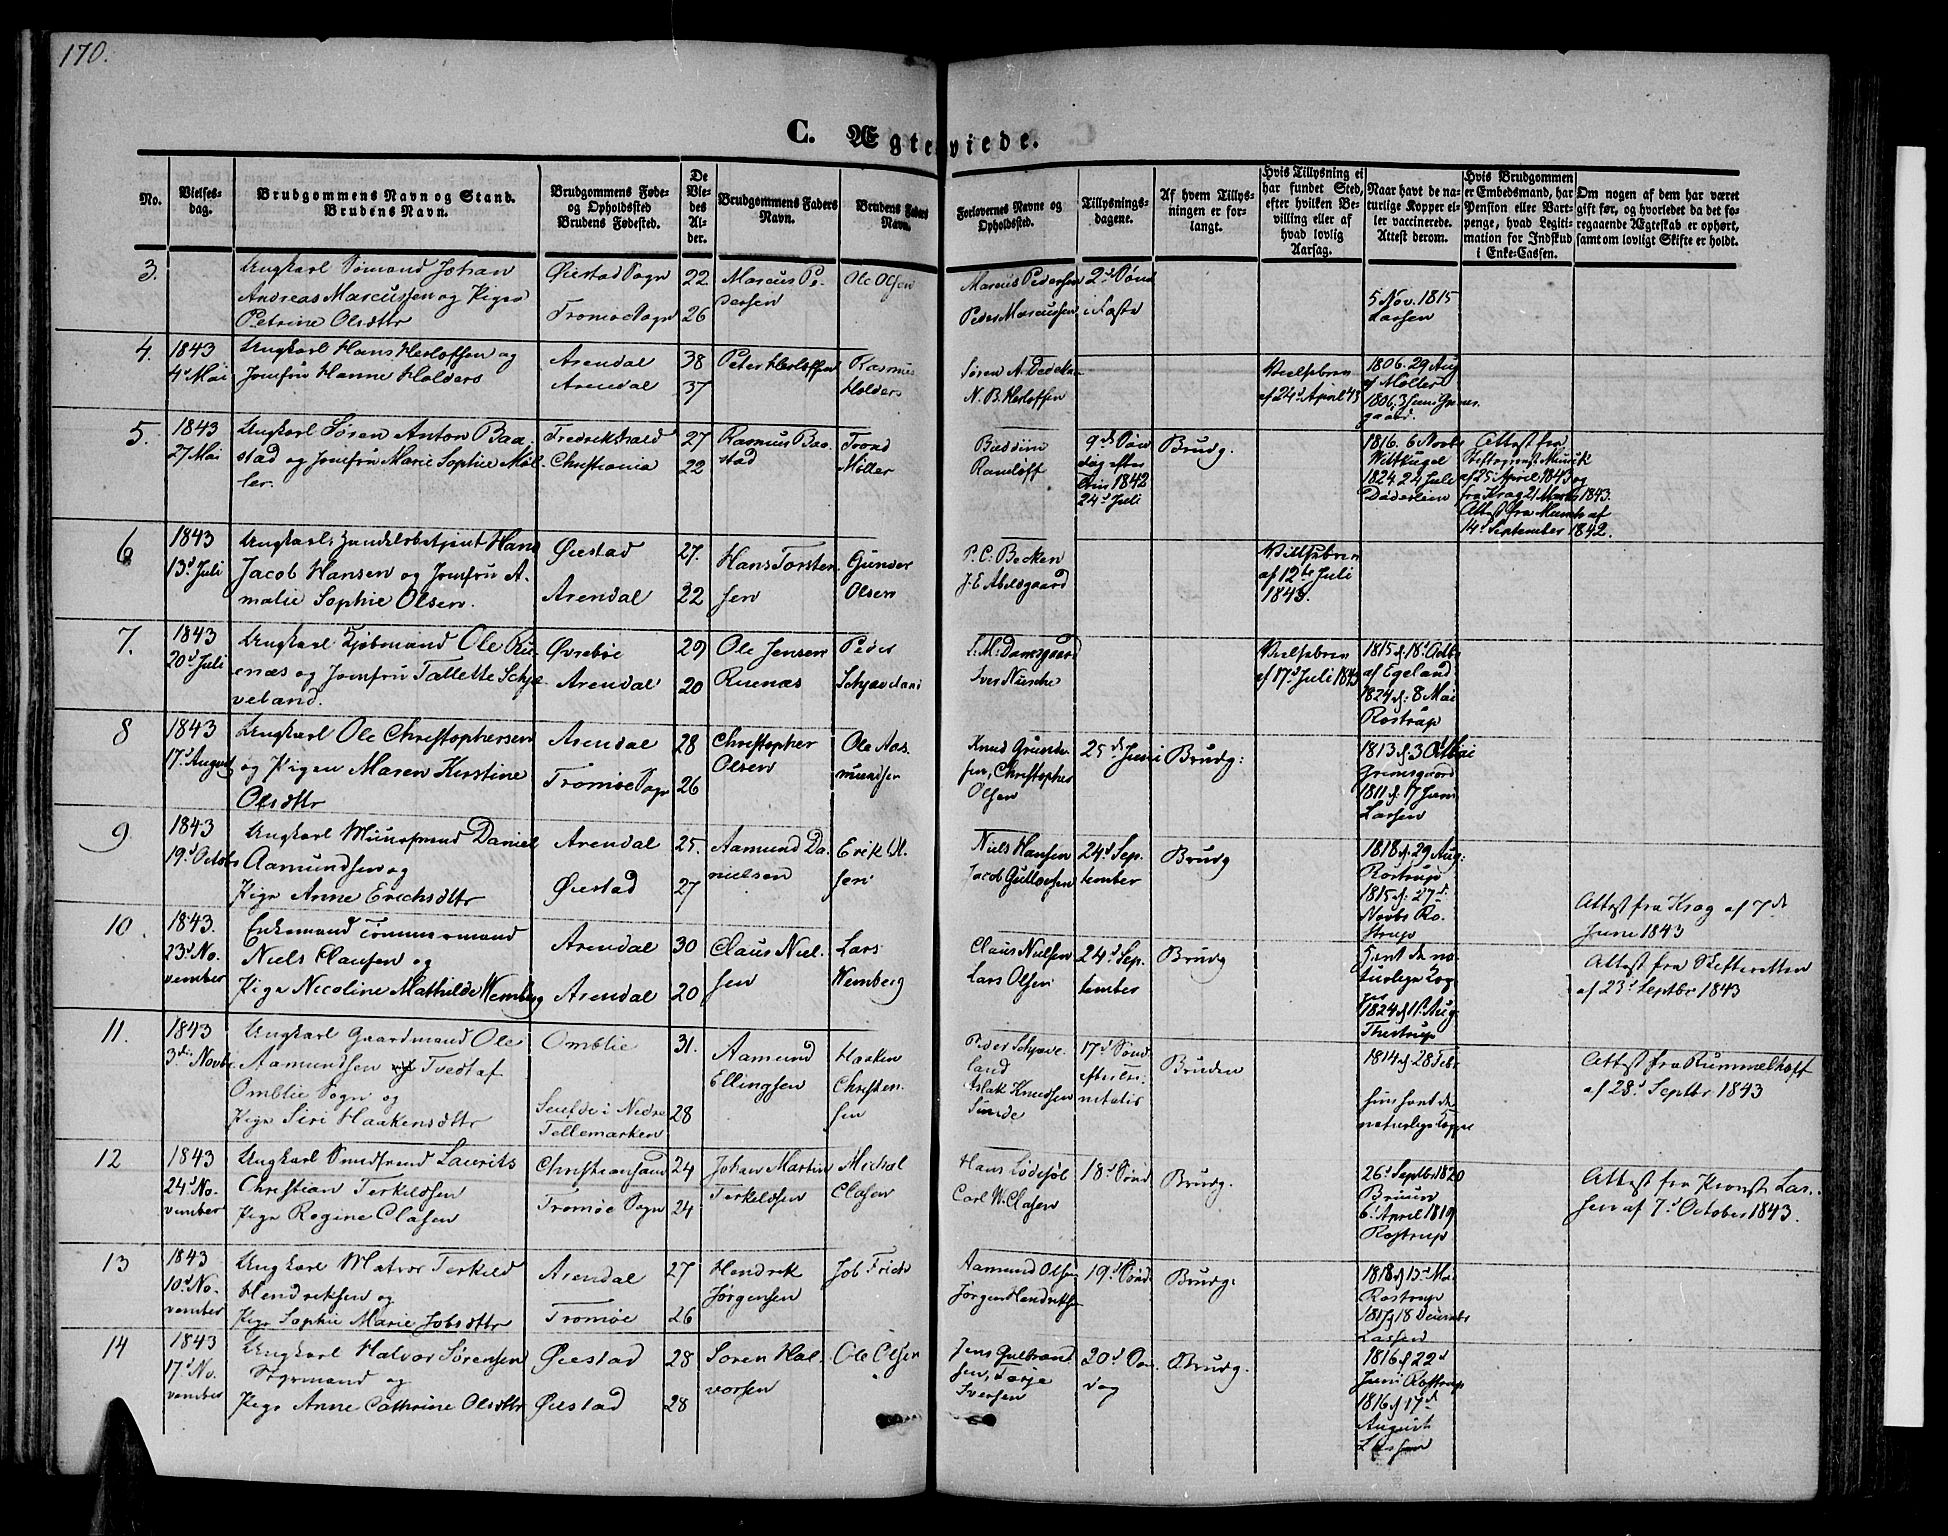 170.
C. Ægteviede.
No.
Vielses-
dag.
Brudgommens Navn og Stand.
Brudens Navn.
Brudgommens Føde-
og Opholdssted
Brudens Fødested.
De
Vie-
des
Al-
der.
Brudgommens Faders
Navn.
Brudens Faders
Navn.
Forlovernes Navne og
Opholdssted.
Tillysnings-
dagene.
Af hvem Tillys-
ningen er for-
langt.
Hvis Tillysning ei
har fundet Sted,
efter hvilken Be-
villing eller af
hvad lovlig
Aarsag.
Naar havt de na-
turlige Kopper el-
ler vaccinerede.
Attest derom.
Hvis Brudgommen
er Embedsmand, har
Pension eller Vart-
penge, hvad Legiti-
mation for Indskud
i Enke-Cassen.
Om nogen af dem har været
gift før, og hvorledet da det fo-
regaaende Ægteskab er ophørt,
samt om lovligt Skifte er holdt.
3.
Ungkarl Sømand Johan
Andreas Marcussen og Pigen
Petrine Olsdttr
Øiestad Sogn
Tromøe Sogn
22
26
Marcus Pe-
dersen
Ole Olsen
Marcus Pedersen
Peder Marcussen
2d Sønd
i Faste
5 Nov. 1815
Lassen
4.
1843
4d Mai
Ungkarl Hans Herloffsen og
Jomfru Hanne Holders
Arendal
Arendal
38
37
Peter Herloffsen
Rasmus
Holders
Søren A. Dedekam
N. B. Herloffsen
af 24d April 43
1806. 29 Aug
af Møller
5.
1843
27 Mai
Ungkarl Søren Anton Baa-
stad og Jomfru Marie Sophie Møl-
ler.
Fredrikshald
Christiania
27
22
Rasmus Baa-
stad
Trond
Møller
9de Søn-
dag efter
Trin 1842
24d Juli
Brudg.
1816. 6 Novbr
Wittkugel
1824. 24 Juli
Døderlein
Attest fra
af 25 April 1843 og
fra Krag 21 Marts 1843.
Attest fra Munch af
14d September 1842.
6
1843
13d Juli
Ungkarl, Handelsbetjent Hans
Jacob Hansen og Jomfru A-
malie Sophie Olsen.
Øiestad
Arendal
27.
22
Hans Torsten-
sen
Gunder
Olsen
P. C. Becken
J. E. Abelsgaard
af 12te Juli
1843.
7.
1843
20d Juli
Ungkarl Kjøbmand Ole Ru-
enæs og Jomfru Tallette Schjæ-
veland.
Øvrebøe
Arendal
29
20
Ole Jensen
Ruenæs
Peder
Schjæveland
af 17d Juli 1843
1815 d. 18d Octbr
af Egeland
1824 d. 8 Mai
Rostrup
8
1843
17d August
Ungkarl Ole Christophersen
og Pigen Maren Kirstine
Olsdttr
Arendal
Tromøe Sogn
28
26
Christopher
Olsen
Ole Aas-
mundsen
Knud Gunde-
sen, Christopher
Olsen
25de Juni
Brudg:
Grimsgaard
1811 d. 17 Juni
Lassen
9
1843
19d Octobr
Ungkarl Muurmand Daniel
Aamundsen og
Pige Anne Erichsdttr
Arendal
Øiestad
25.
27
Aamund Da-
nielsen
Niels Hansen
Jacob Gullovsen
24d Sep-
tember
Brudg
1818 d. 29 Aug:
Rostrup
1815 d. 27d
Novbr Ro-
strup
Attest fra Krog af 7de
June 1843
10.
1843.
23d No-
vember
Enkemand Tømmermand
Niels Clausen og
Pige Nicoline Mathilde Wemberg
Arendal
Arendal
30
20
Claus Niel-
sen
Lars
Wemberg
Claus Nielsen
Lars Olsen
24d Sep-
tember
Brudg
havt de na-
turlige Kop-
per
1824 d. 11d Aug
Thestrup
Attest fra Skifteretten
af 23d Septbr 1843
11.
1843
3die Novbr.
Ungkarl Gaardmand Ole
Aamundsen Tvedt af
Omblie Sogn og
Pige Siri Haakensdttr
Omblie
i Nedre
Tellemarken
31.
28
Aamund
Ellingsen
Haaken
Christen-
sen
Peder Schjæve-
land
Aslak Knudsen
Sunde
17d Sønd
efter Tri-
nitatis
Bruden
1814 d. 28 Febr
hun havt de
naturlige Kopper
Attest fra Rummelhoff
af 28d Septbr 1843
12
1843
24d No-
vember
Ungkarl Smedsvend Laurits
Christian Terkildsen
Pige Regine Clasen
Christiansand
Tromøe Sogn
24
24
Johan Martin
Terkildsen
Michal
Clasen
Hans Lødesøl
Carl W. Clasen
18d Sønd
Brudg.
26d Septbr 1820
Bruun
6d April 1819
Rostrup
Attest fra Provst Las-
sen af 7d October 1843.
13
1843
10d No-
vember
Ungkarl Matros Terkild
Hendriksen og
Pige Sophie Marie Jobsdttr
Arendal
Tromøe
27
26
Hendrik
Jørgensen
Job
Aamund Olsen
Jørgen Hendriksen
19d Sønd
Brudg:
1818 d 13d Mai
Rostrup
1817 d 18 Decembr
Lassen
14
1843
17d No-
vember
Ungkarl Halvor Sørensen
Styrmand og
Pige Anne Cathrine Olsdttr
Øiestad
Øiestad
28
28
Soren Hal-
vorsen
Ole Olsen
Jens Gultran-
sen, Torje
Iversen
20d Søn-
dag
Brudg.
1816 d 22d
Juni Rostrup
1816 d 17d
August
Lassen